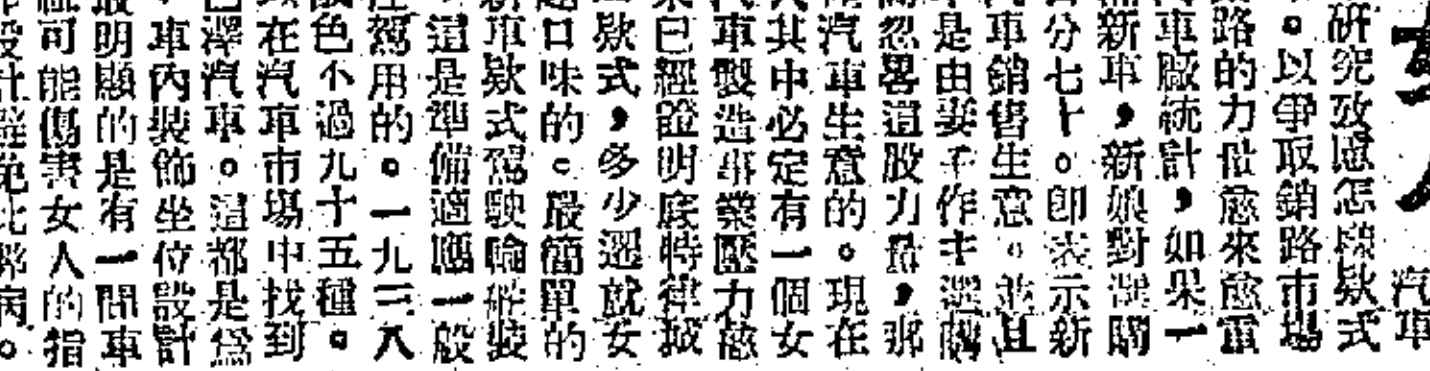 汽車
研究攷慮怎樣欵式
。以爭取銷路市場
路的力愈來愈重
車廠統計，如果一
新車，新娘對選購
分七十。即表示新
車銷售生意。並且
是由妻子作主選購
忽畧這股力量，那
汽車生意的。現在
其中必定有一個女
車製造事業壓力
已經證明底特律城
欵式，多少遷就女
口味的。最簡單的
車欵式駕駛輪裝
這是準備適應一般
駕用的。一九三八
色不過九十五種。
在汽車市場中找到
澤汽車。這都是爲
車內裝飾坐位設計
明顯的是有一間車
可能傷害女人的指
設計避免此弊病。